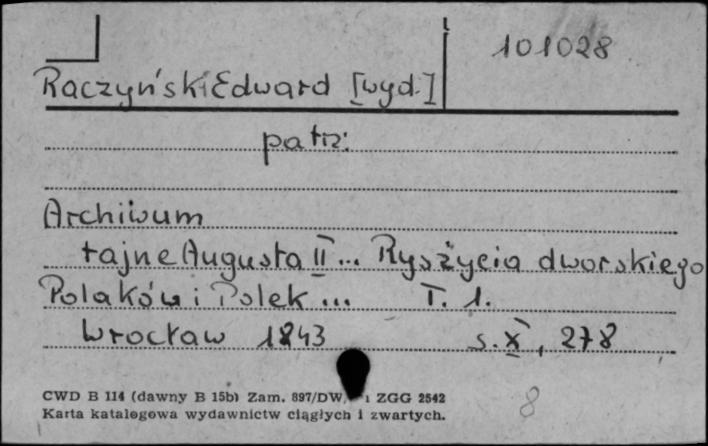 101028
Raczyński Edward [wyd.]
patrz:
Archiwum
tajne Augusta II... Rys życia dworskiego
Polaków i Polek ... T. 1.
Wrocław 1843 s. X, 278
CWD B 114 (dawny B 15b) Zam. 897/DW, i ZGG 2542
Karta katalogowa wydawnictw ciągłych i zwartych.
8